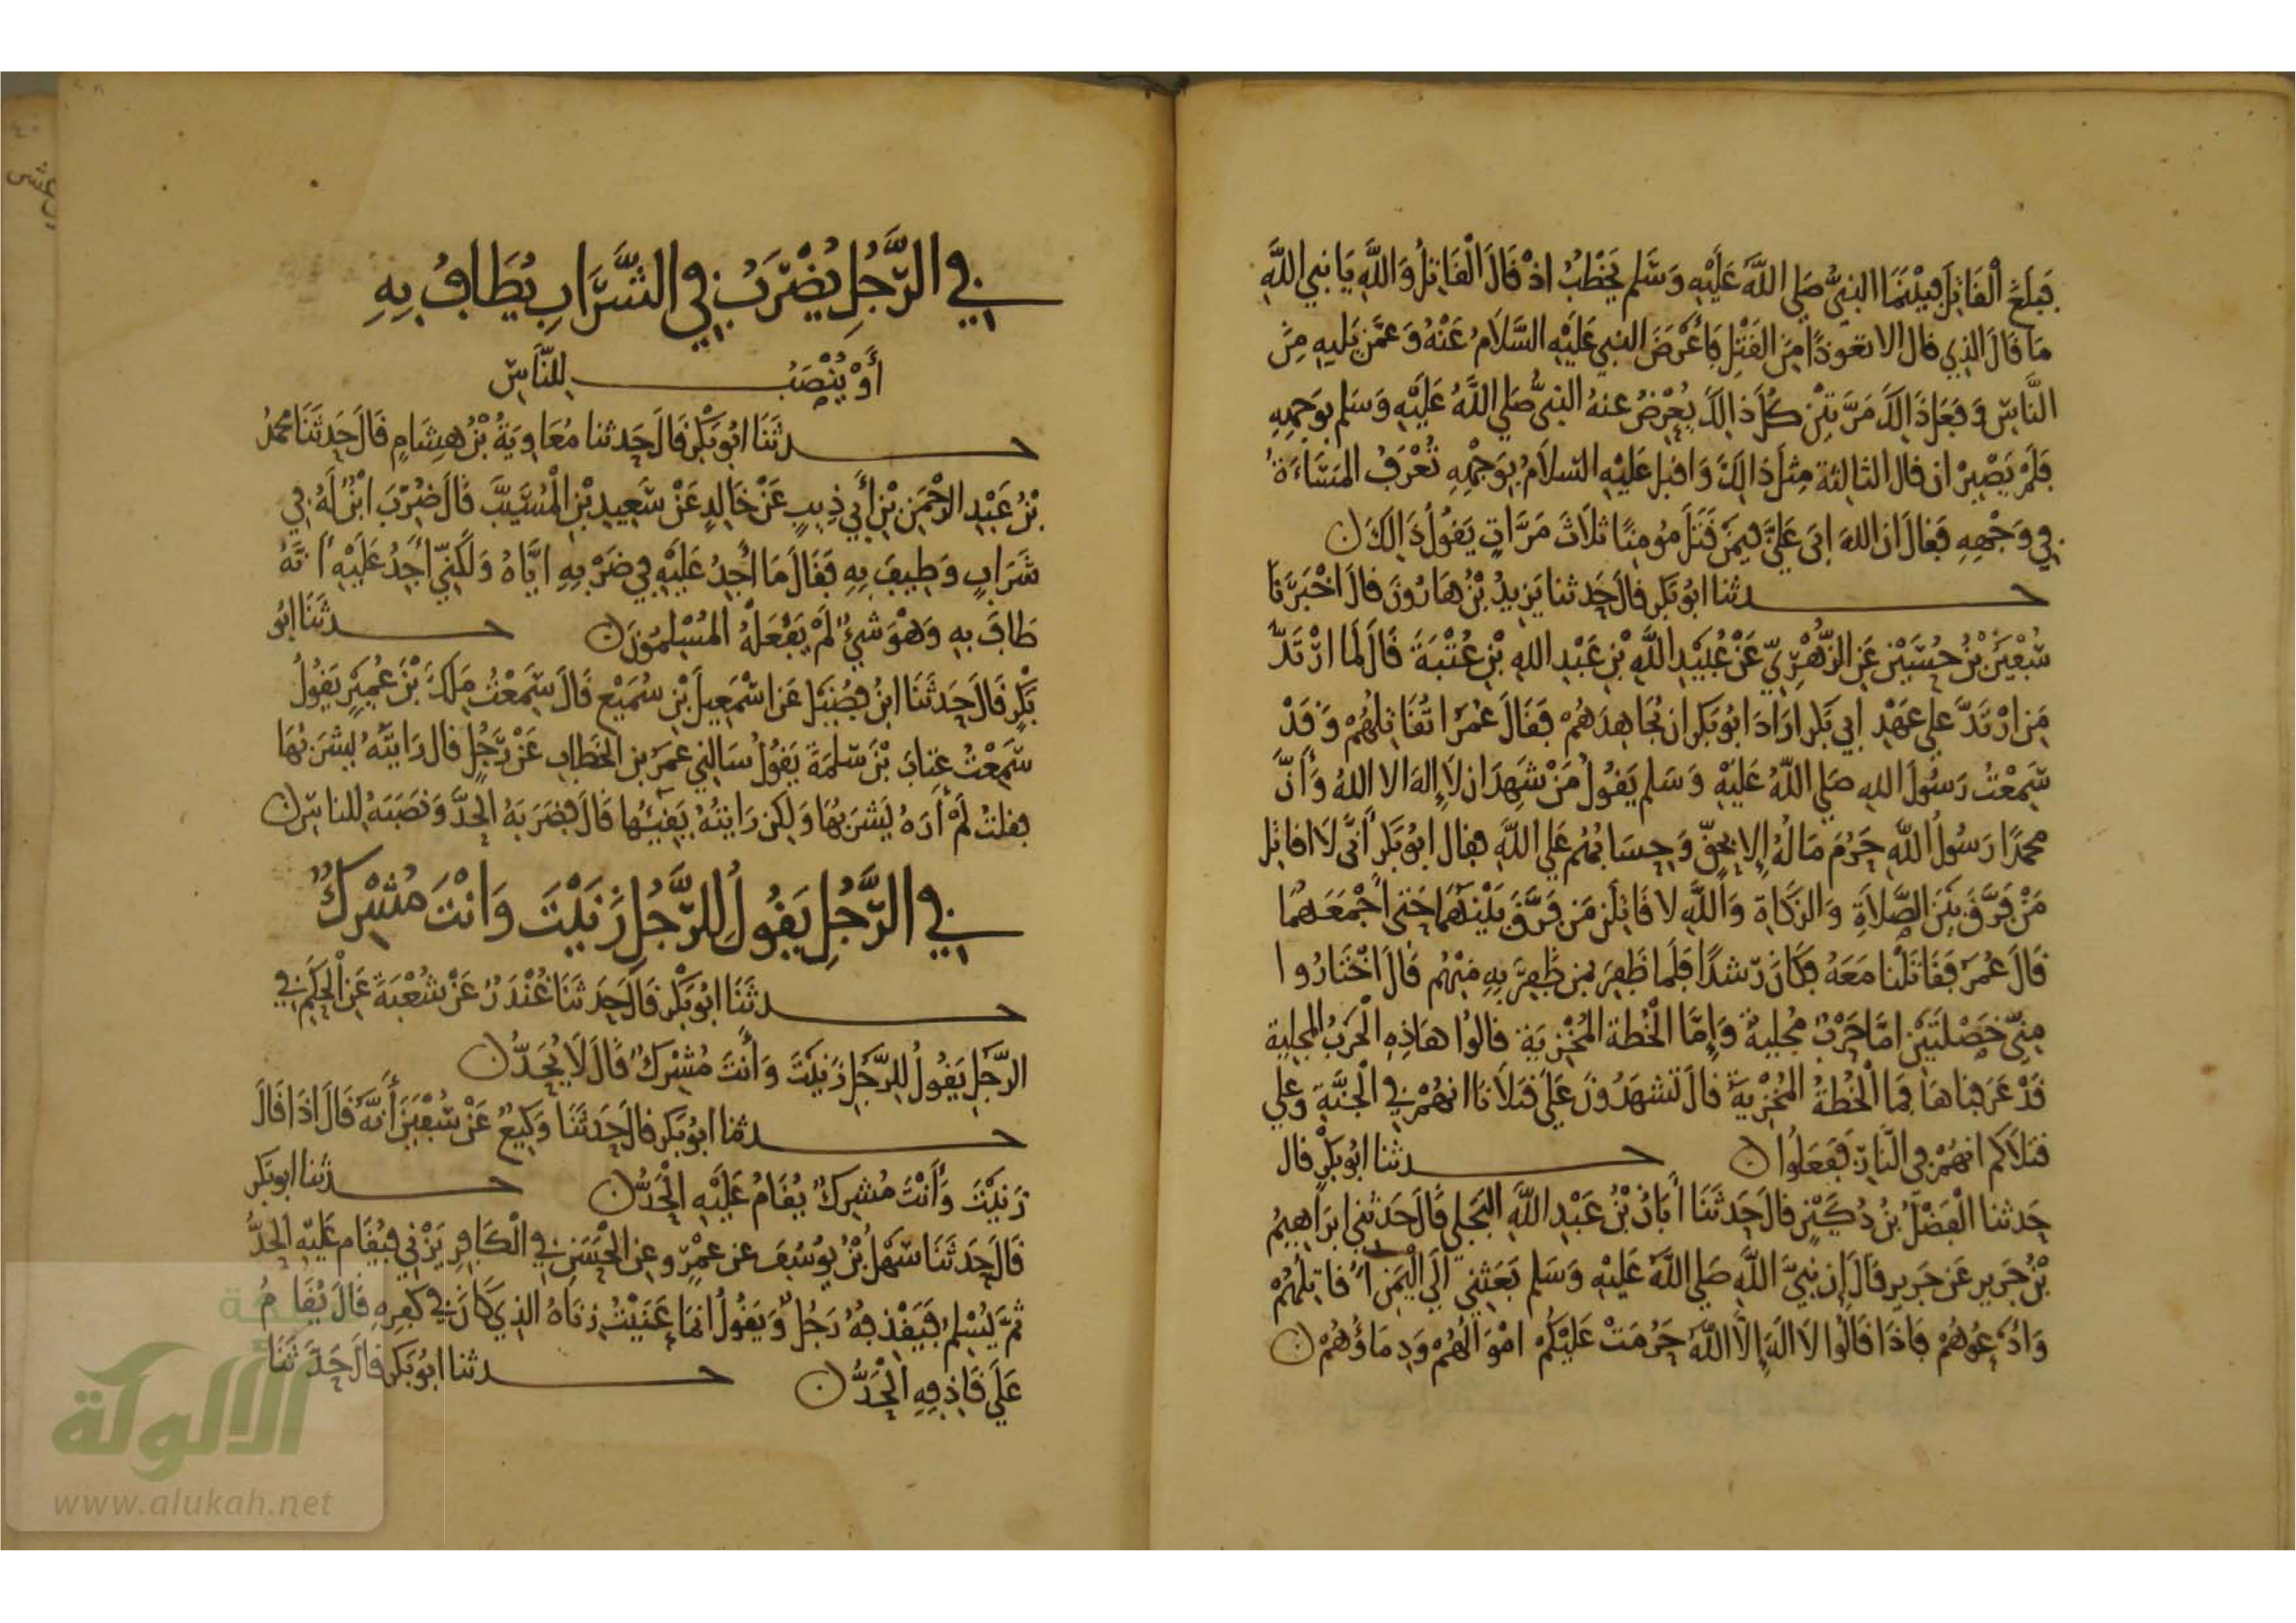 فَبَلَغَ الْقَاتِلَ فَبَيْنَمَا النبيُّ صَلى اللَّهُ عَلَيْهِ وَسَلم يَخْطُبُ اذْ قَالَ الْقَاتِلُ وَاللَّهِ يَا نبي اللَّهِ
مَا قَالَ الذِي قال الا تعوذًا مِنَ القَتْلِ فَأَعْرَضَ النبي عَلَيْهِ السَّلَامُ عَنْهُ وَعَمَّن يَلِيهِ مِنَ
النَّاسِ وَفَعَلَ ذَالِكَ مَرَّتَيْنِ كُلَّ ذَالِكَ يُعْرِضُ عنهُ النبيُّ صَلي اللَّهُ عَلَيْهِ وَسَلم بِوَجْهِهِ
فَلَمْ يَصْبِرْ ان قال الثالثة مِثْلَ ذَالِكَ وَاقبل عَلَيْهِ السَّلَامُ بِوَجْهِهِ تُعْرَفُ المَسَاءَةُ
في وَجْهِهِ فَقَالَ ان اللهَ ابَى عَلَيَّ فِيمَنْ قَتَلَ مُومِنًا ثلَاثَ مَرَّاتٍ يَقُولُ ذَالِكَ
حدثنا ابُو بَكر قالَ حَدثنا يَزِيدُ بْنُ هَارُونَ قالَ اخْبَرَنَا
سُفْيَنُ بْنُ حُسَيْنٍ عَنِ الزُّهْرِيّ عَنْ عُبَيْدِ اللَّهِ بْنِ عَبْدِ اللهِ بْنِ عُتْبَةَ قَالَ لَمَا ارْتَدَّ
مَنِ ارْتَدَّ علي عَهْدِ ابي بَكر ارَادَ ابُو بَكر ان يُجَاهِدَهُم فَقَالَ عُمَرُ اتُقَاتِلُهُمْ وَقَدْ
سَمِعْتُ رَسُولَ اللهِ صَلي اللَّهُ عَلَيْهِ وَسَلم يَقُولُ مَنْ شَهِدَ ان لَا إِلهَ الا اللهُ وَأَنَّ
محمدًا رَسُولُ اللهِ حَرُمَ مَالُهُ إِلا بِحَقّ وَحِسَابُهُم عَلي اللَّهِ فقال ابُو بَكْرٍ أَنَّى لَا اقاتِل
مَنْ فَرَّقَ بَيْنَ الصَّلَاةِ وَالزَّكَاةِ وَاللَّهِ لا قَاتِلَن مَن فَرَّقَ بَيْنَهُمَا حَتى اَجْمَعَهُمَا
قَالَ عُمَر فَقَاتَلْنا مَعَهُ فَكَانَ رَشدًا فَلَما ظَفِرَ بمن ظَفِرَ بِهِ مِنْهُم قَالَ اخْتَارُوا
مِنِّي خَصْلَتَيْنِ امَّا حَرْبٌ مُجلِيةٌ وَإِمَّا الْخُطة المُخْزِيَة قالُوا هَاذِهِ الْحَرْبُ المجلية
قَدْ عَرَفنَاهَا فَمَا الْخُطةُ المُخْزِيَةُ قالَ تَشْهَدُونَ عَلَي قَتلَانَا انهُمْ فِي الْجَنَّةِ وَعلي
قتلَاكم انهُمْ في النَّارِ فَفَعَلُوا حدثنا ابُو بَكْرٍ قال
حَدثنا الْفَضْلُ بْنُ دُكَيْنٍ قالَ حَدثَنَا أَبَانُ بْنُ عَبْدِ اللَّهِ البَجَلي قَالَ حَدثني ابرَاهِيمُ
بْنُ جَرِيرٍ عَن جَرِيرٍ قَالَ إِن نبيَّ اللَّهِ صَلي اللَّهُ عَلَيْهِ وَسَلم بَعَثنِي الَي الْيَمَنِ اُقاتِلُهُمْ
وَادْعُوهُمْ فَاذَا قَالُوا لَا الَهَ إِلَّا اللَّهُ حَرُمَتْ عَلَيْكُم امْوَالُهُمْ وَدِمَاؤُهُمْ
في الرَّجُلِ يُضْرَبُ في الشَّرَابِ يُطَافُ بِهِ
أَوْ يُنْصَبُ لِلنَّاسِ
حدثَنَا ابُو بَكْر قَالَ حَدثنا مُعَاوِيَةُ بْنُ هِشَامٍ قَالَ حَدثَنَا محمدُ
بْنُ عَبْدِ الرَحْمَنِ بْنِ أَبي ذِيبٍ عَنْ خَالِدٍ عَنْ سَعِيدِ بْنِ الْمُسَيَّبِ قَالَ ضُرِبَ ابْنٌ لَهُ فِي
شَرَابٍ وَطِيفَ بِهِ فَقَالَ مَا أَجِدُ عَلَيْهِ فِي ضَرْبِهِ ايَّاهُ وَلَكِنِّي أَجِدُ عَلَيْهِ أَنهُ
طَافَ بِهِ وَهْوَ شَيْءٌ لَمْ يَفْعَلْهُ المُسْلِمُونَ حدثَنَا ابُو
بَكْرٍ قَالَ حَدثَنَا ابنُ فُضَيْلٍ عَن اسْمَعِيلَ بْنِ سُمَيْع قَالَ سَمِعْتُ مَلِكَ بْنَ عُمَيْرٍ يَقُولُ
سَمِعْتُ عتابَ بْنَ سَلَمَةَ يَقُولُ سَالَنِي عمَرُ بنِ الخَطابِ عَنْ رَجُلٍ قال رَايتَهُ يَشْرَبُهَا
فقلتُ لَمْ أَرَهُ يَشْرَبُهَا وَلَكِن رَايتُهُ يَقِيئُهَا قَالَ فضَرَبَهُ الحَدَّ وَنصَبَهُ للناسِ
في الرَّجُلِ يَقُولُ لِلرَّجُلِ زَنَيْتَ وَانْتَ مُشْرِكٌ
حدثَنَا ابُو بَكْر قَالَ حَدثَنَا غُنْدَرٌ عَنْ شُعْبَةَ عَنِ الْحَكَمِ فِي
الرَّجُلِ يَقُولُ للرَّجُلِ زَنَيْتَ وَأَنتَ مُشْرِكٌ قَالَ لَا يُحَدُّ
حدثنا ابُو بَكر قالَ حَدثَنَا وَكِيعٌ عَنْ سُفْيَنَ أَنَّهُ قَالَ اذَا قَالَ
زَنَيْتَ وَأَنْتَ مُشركٌ يُقَامُ عَلَيْهِ الْحَدُّ حدثنا ابُو بَكر
قَالَ حَدثَنَا سَهْلُ بْنُ يُوسُفَ عن عَمْرٍو عن الْحَسَنِ فِي الْكَافِرِ يَزْنِي فيُقَام عَلَيْهِ الحَدُّ
ثمَّ يُسْلِمُ فَيَقْذِفُهُ رَجُلٌ وَيَقُولُ انمَا عَنَيْتُ زنَاهُ الذِي كَانَ فِي كُفْرِهِ قَالَ يُقَامُ
عَلَي قَاذِفِهِ الْحَدُّ حدثنا ابُو بَكر قالَ حَدثَنَا
الألوكة
www.alukah.net